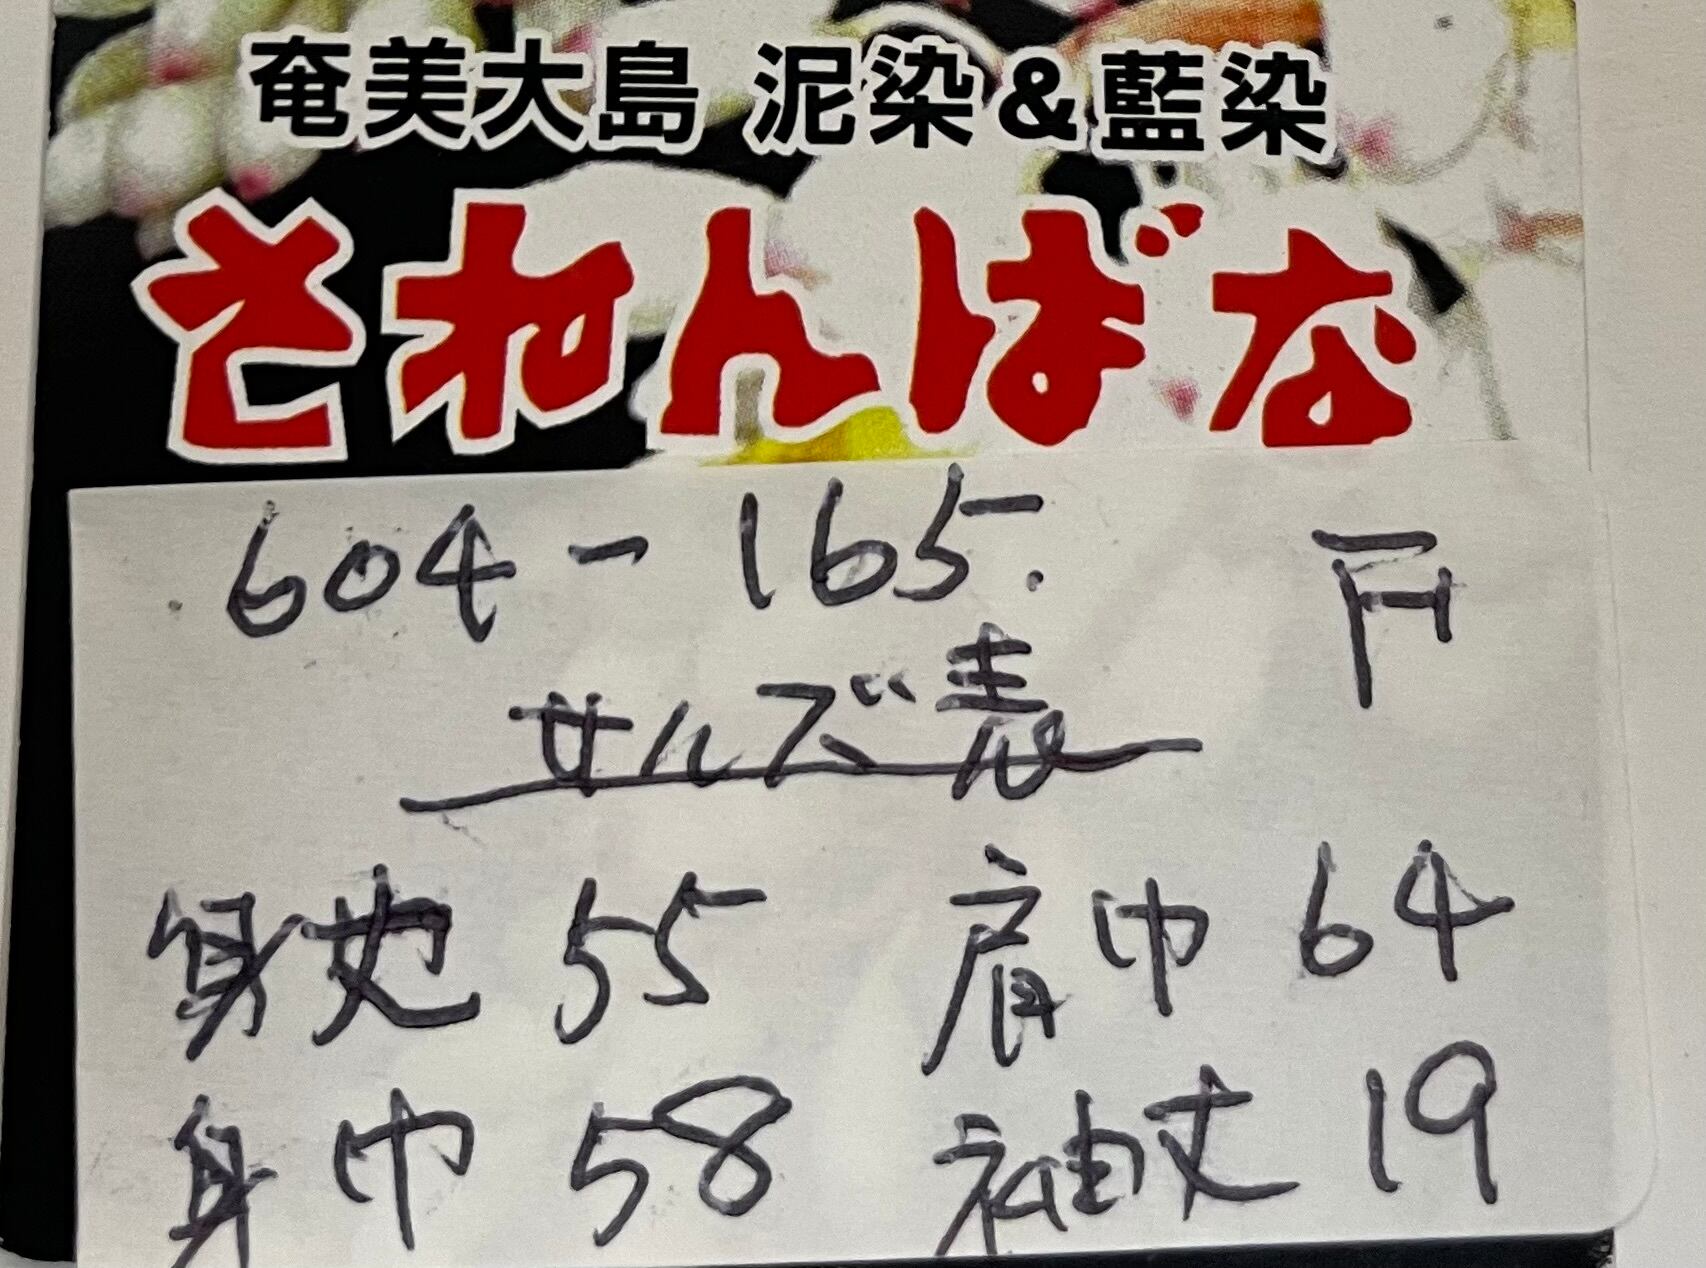 奄美大島 泥染&藍染
さねんばな
604-165.
戸
サイズ表
身丈 55 肩巾 64
身巾 58 袖丈 19